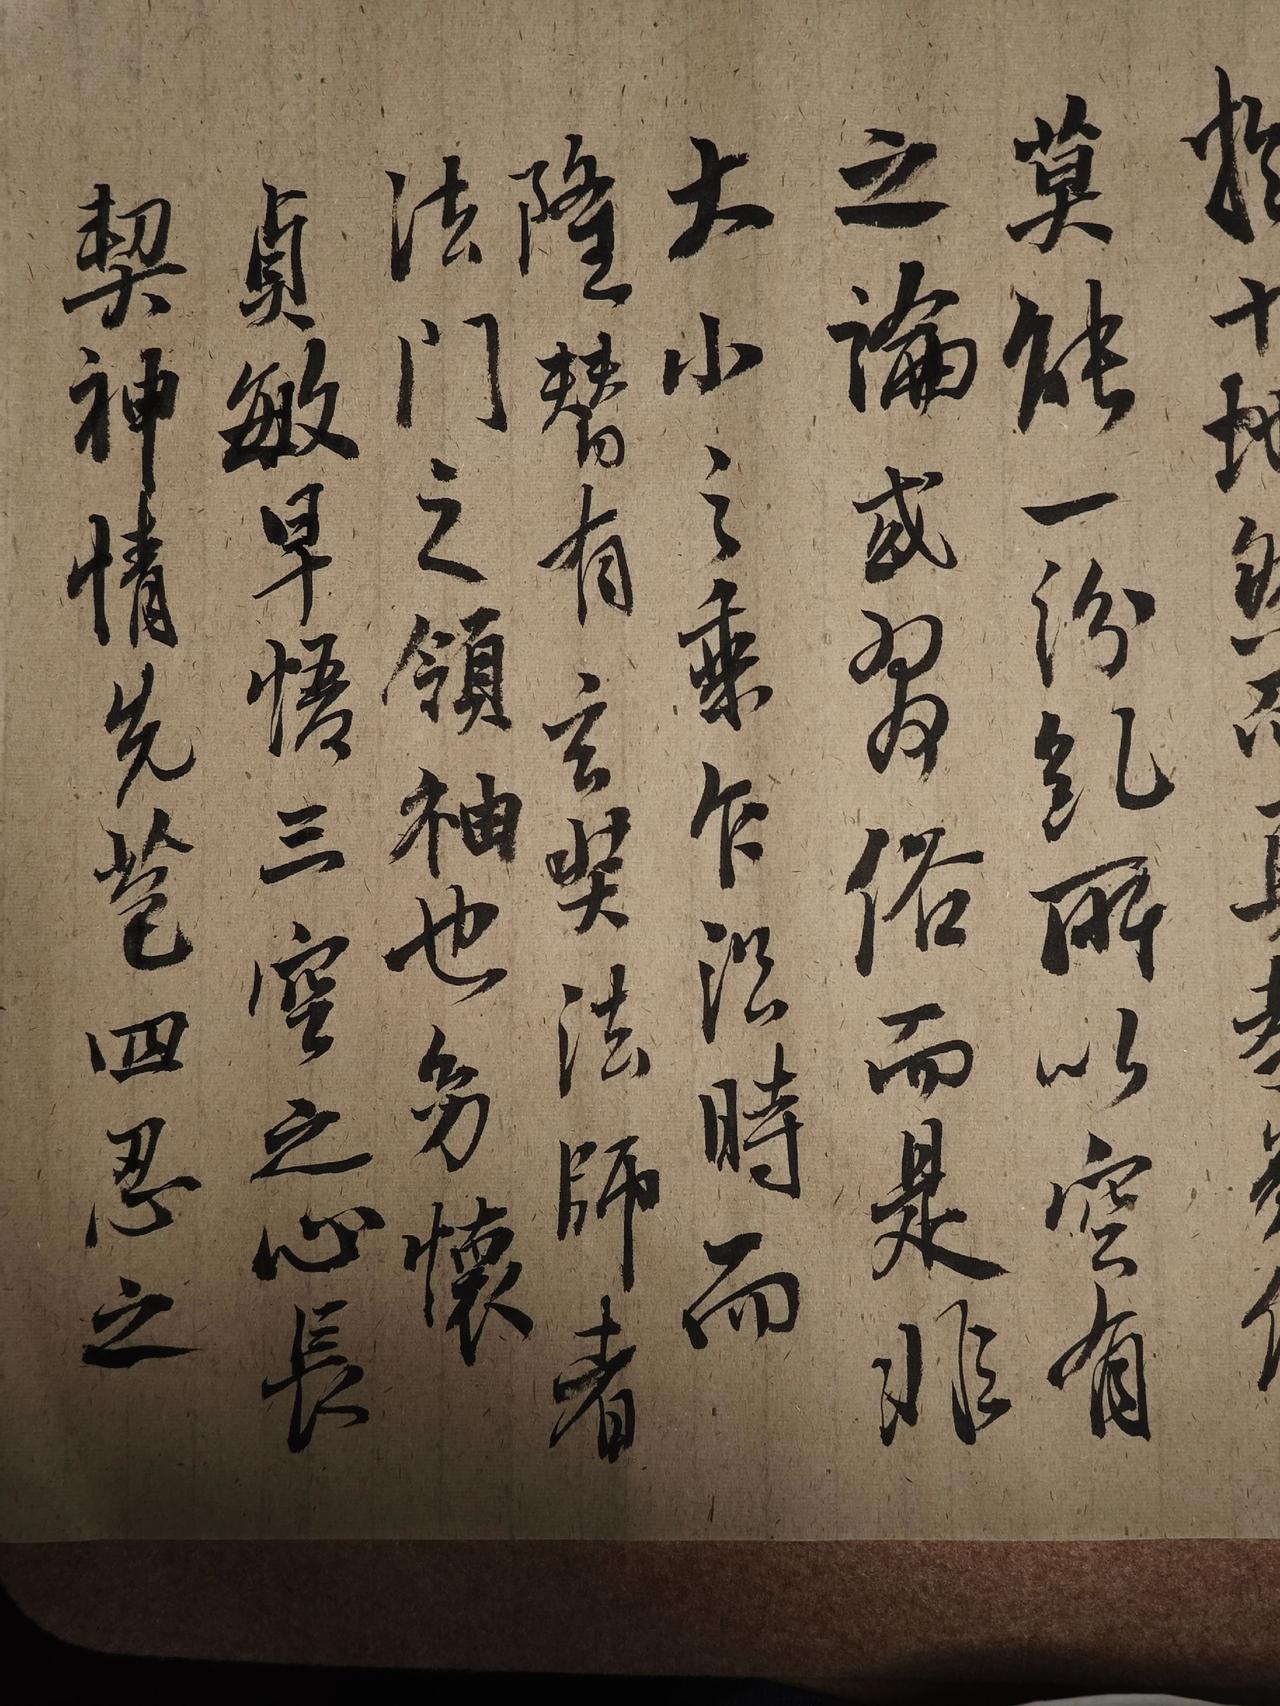 於十地然而真教難仰
莫能一紛糺所以空有
之論或習俗而是非
大小之乘乍沿時而
隆替有玄奘法師者
法門之領袖也幼懷
貞敏早悟三空之心長
契神情先苞四忍之